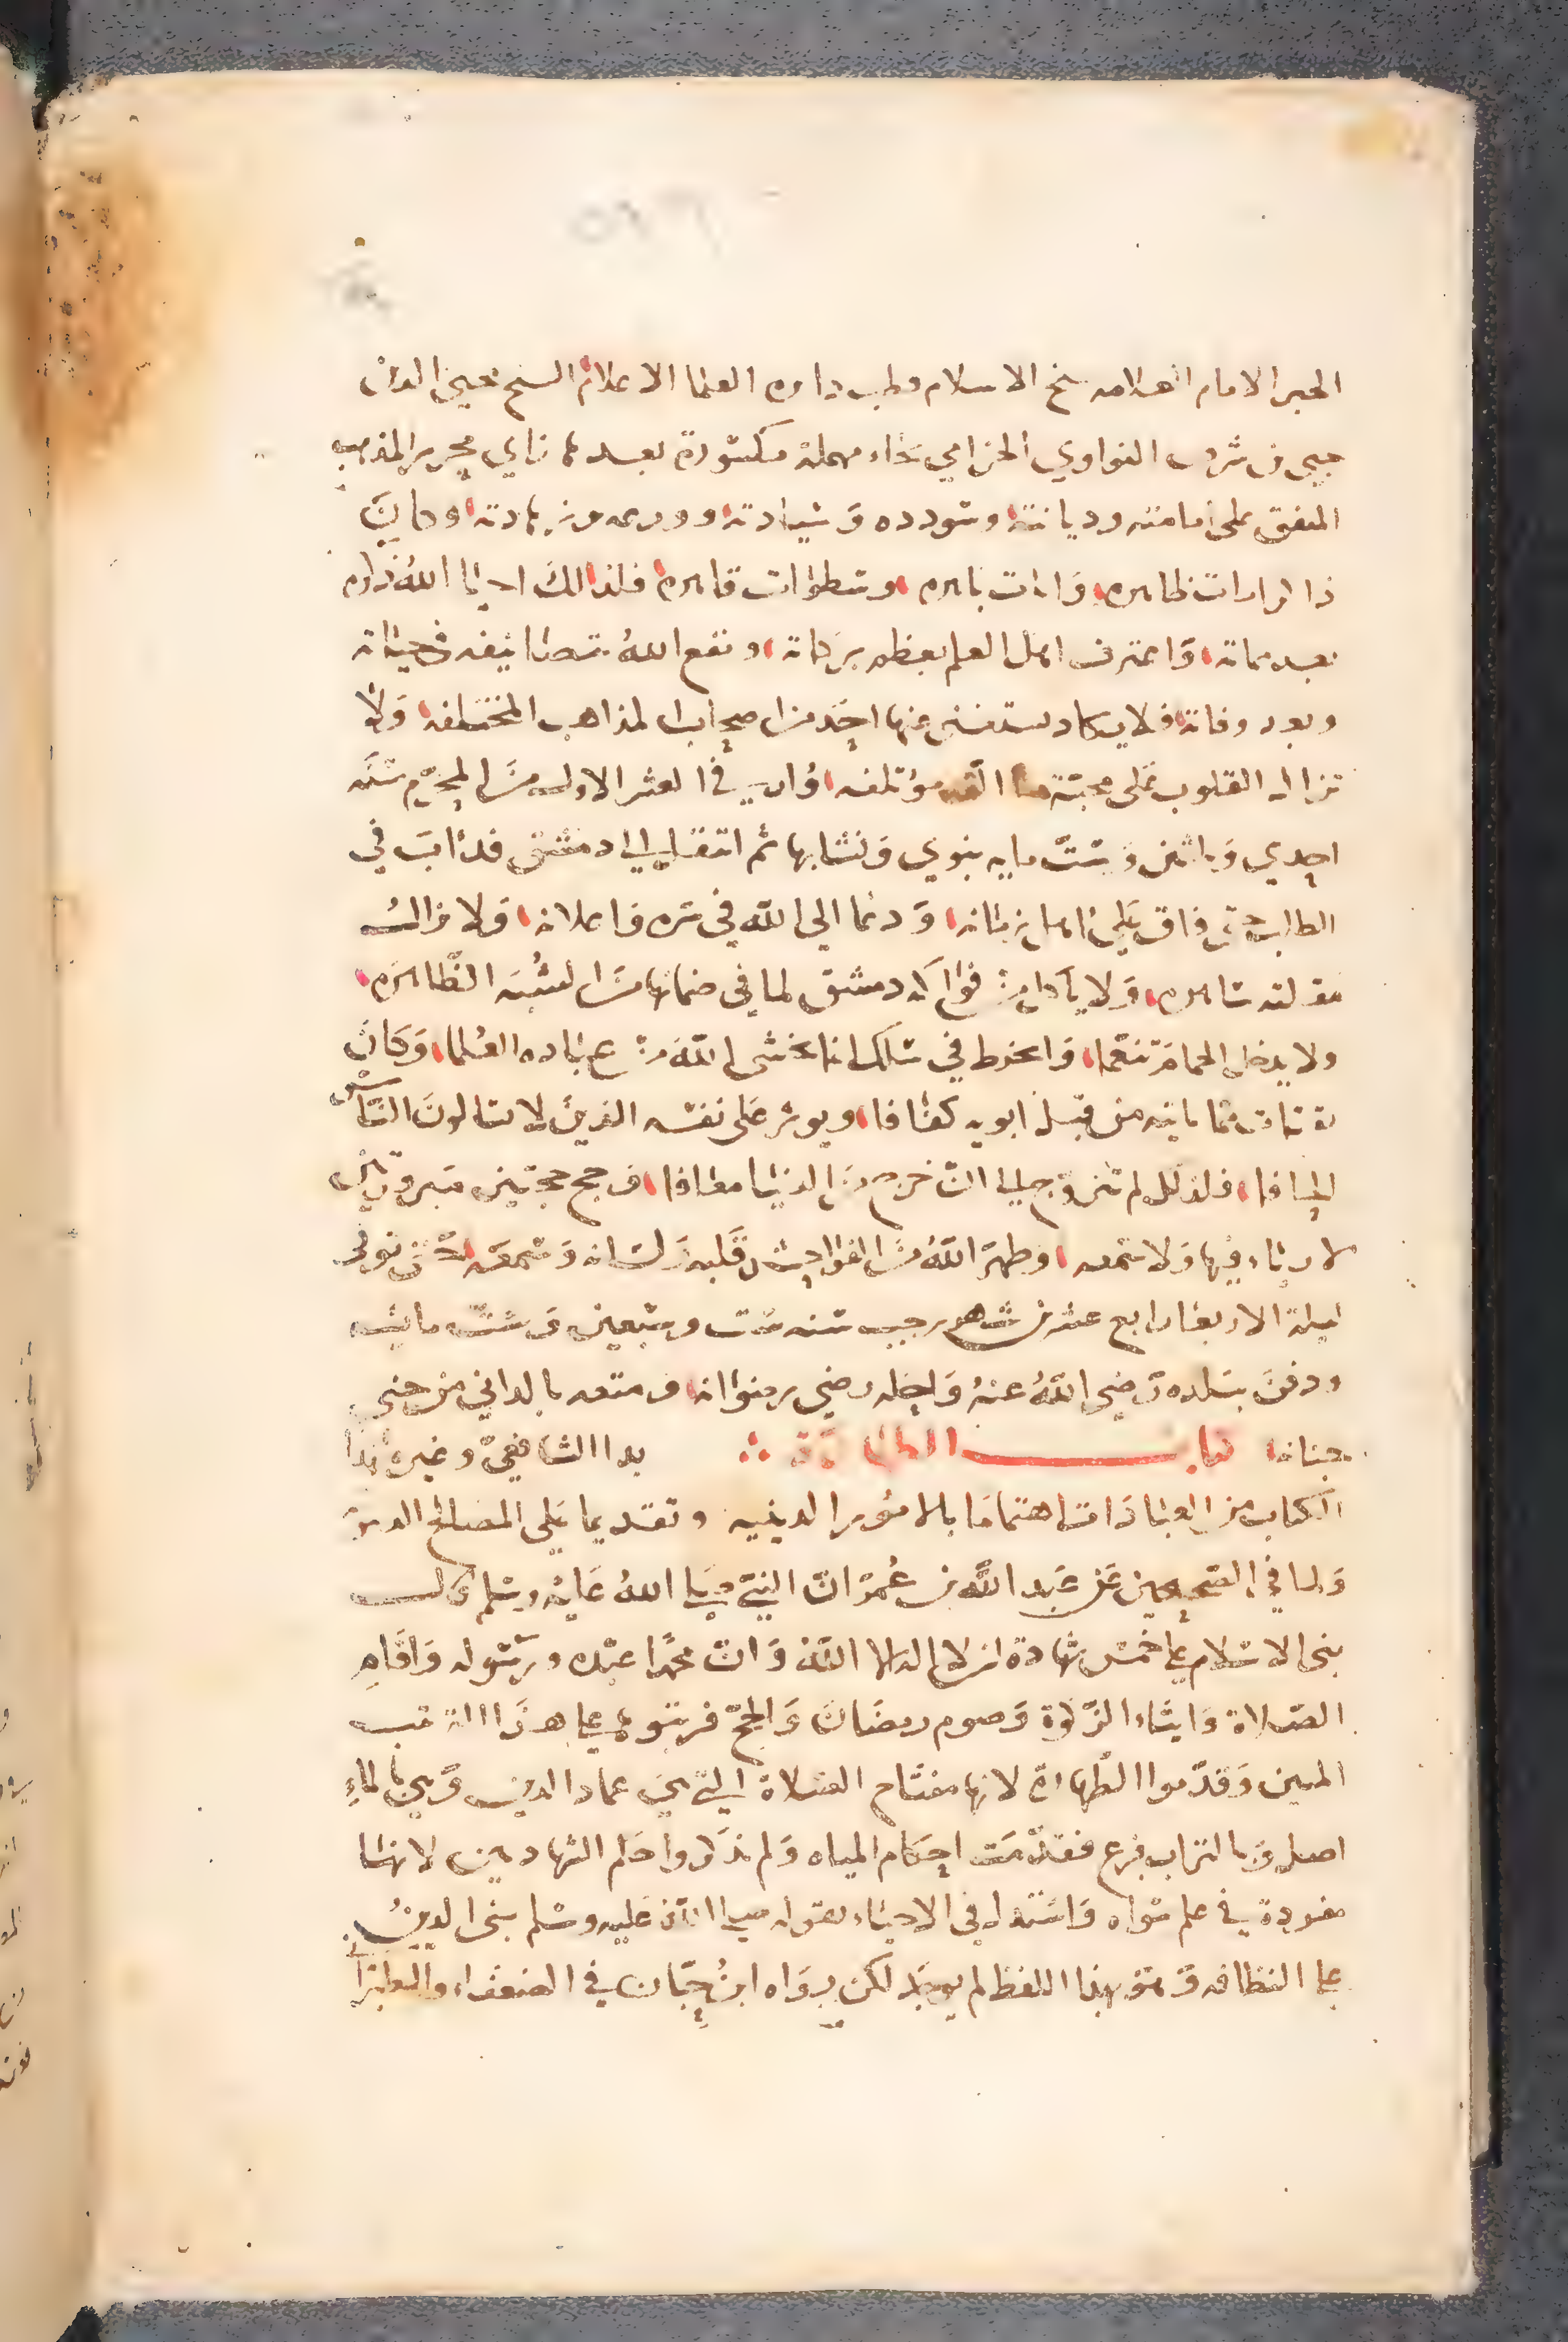 الحبر الامام العلامه شيخ الاسلام قطب دايره العلما الاعلام الشيخ محيي الدين
يحيى بن شرف النواوي الحزامي بحاء مهملة مكسورة بعدها زاي محرر المذهب
المتفق على امامته وديانته وسودده وسيادته وورعه وزهادته وكان
ذا كرامات ظاهره وايات باهره وسطوات قاهره فلذالك احيا الله ذكره
بعد مماته واعترف اهل العلم بعظم بركاته ونفع الله بتصانيفه في حياته
وبعد وفاته فلا يكاد يستغني عنها احد من اصحاب المذاهب المختلفه ولا
تزال القلوب على محبة ما الفه مؤتلفه ولد في العشر الاول من المحرم سنه
احدي وثلاثين وست مايه بنوي ونشا بها ثم انتقل الى دمشق فداب في
الطلب حتى فاق على اهل زمانه ودعا الي الله في سره واعلانه ولا زالت
مقلته ساهره ولا ياكل من فواكه دمشق لما في ضمانها من الشبه الظاهره
ولا يدخل الحمام تنعما وانخرط في سلك انما يخشى الله من عباده العلما وكان
يقتات مما ياتيه من قبل ابويه كفافا ويوثر على نفسه الذين لا يسالون الناس
الحافا فلذلك لم يتزوج الى ان خرج من الدنيا معافا وحج حجتين مبرورتين
لا رياء فيها ولا سمعه وطهر الله من الفواحش قلبه ولسانه وسمعه توفي
ليلة الاربعا رابع عشرين شهر رجب سنه ست وسبعين وست مايه
ودفن ببلده رضي الله عنه واحله رضي رضوانه ومتعه بالداني من جنى
جنانه كتاب الطهارة بدا الشافعي وغيره هذا
الكتاب من العبادات اهتماما بالامور الدينيه وتقديما على المصالح الدنيويه
ولما في الصحيحين عن عبد الله بن عمر ان النبي صلى الله عليه وسلم قال
بنى الاسلام على خمس شهادة ان لا اله الا الله وان محمدا عبده ورسوله واقام
الصلاة وايتاء الزكاة وصوم رمضان والحج فرتبوها على هذا الترتيب
المبين وقدموا الطهارة لانها مفتاح الصلاة التي هي عماد الدين وهي بالماء
اصل وبالتراب فرع فقدمت احكام المياه ولم يذكروا حكم الشهادتين لانها
مفردة في علم سواه واستدل في الاحياء بقوله صلى الله عليه وسلم بنى الدين
على النظافه وهو بهذا اللفظ لم يوجد لكن رواه ابن حبان في الضعفاء والطبراني